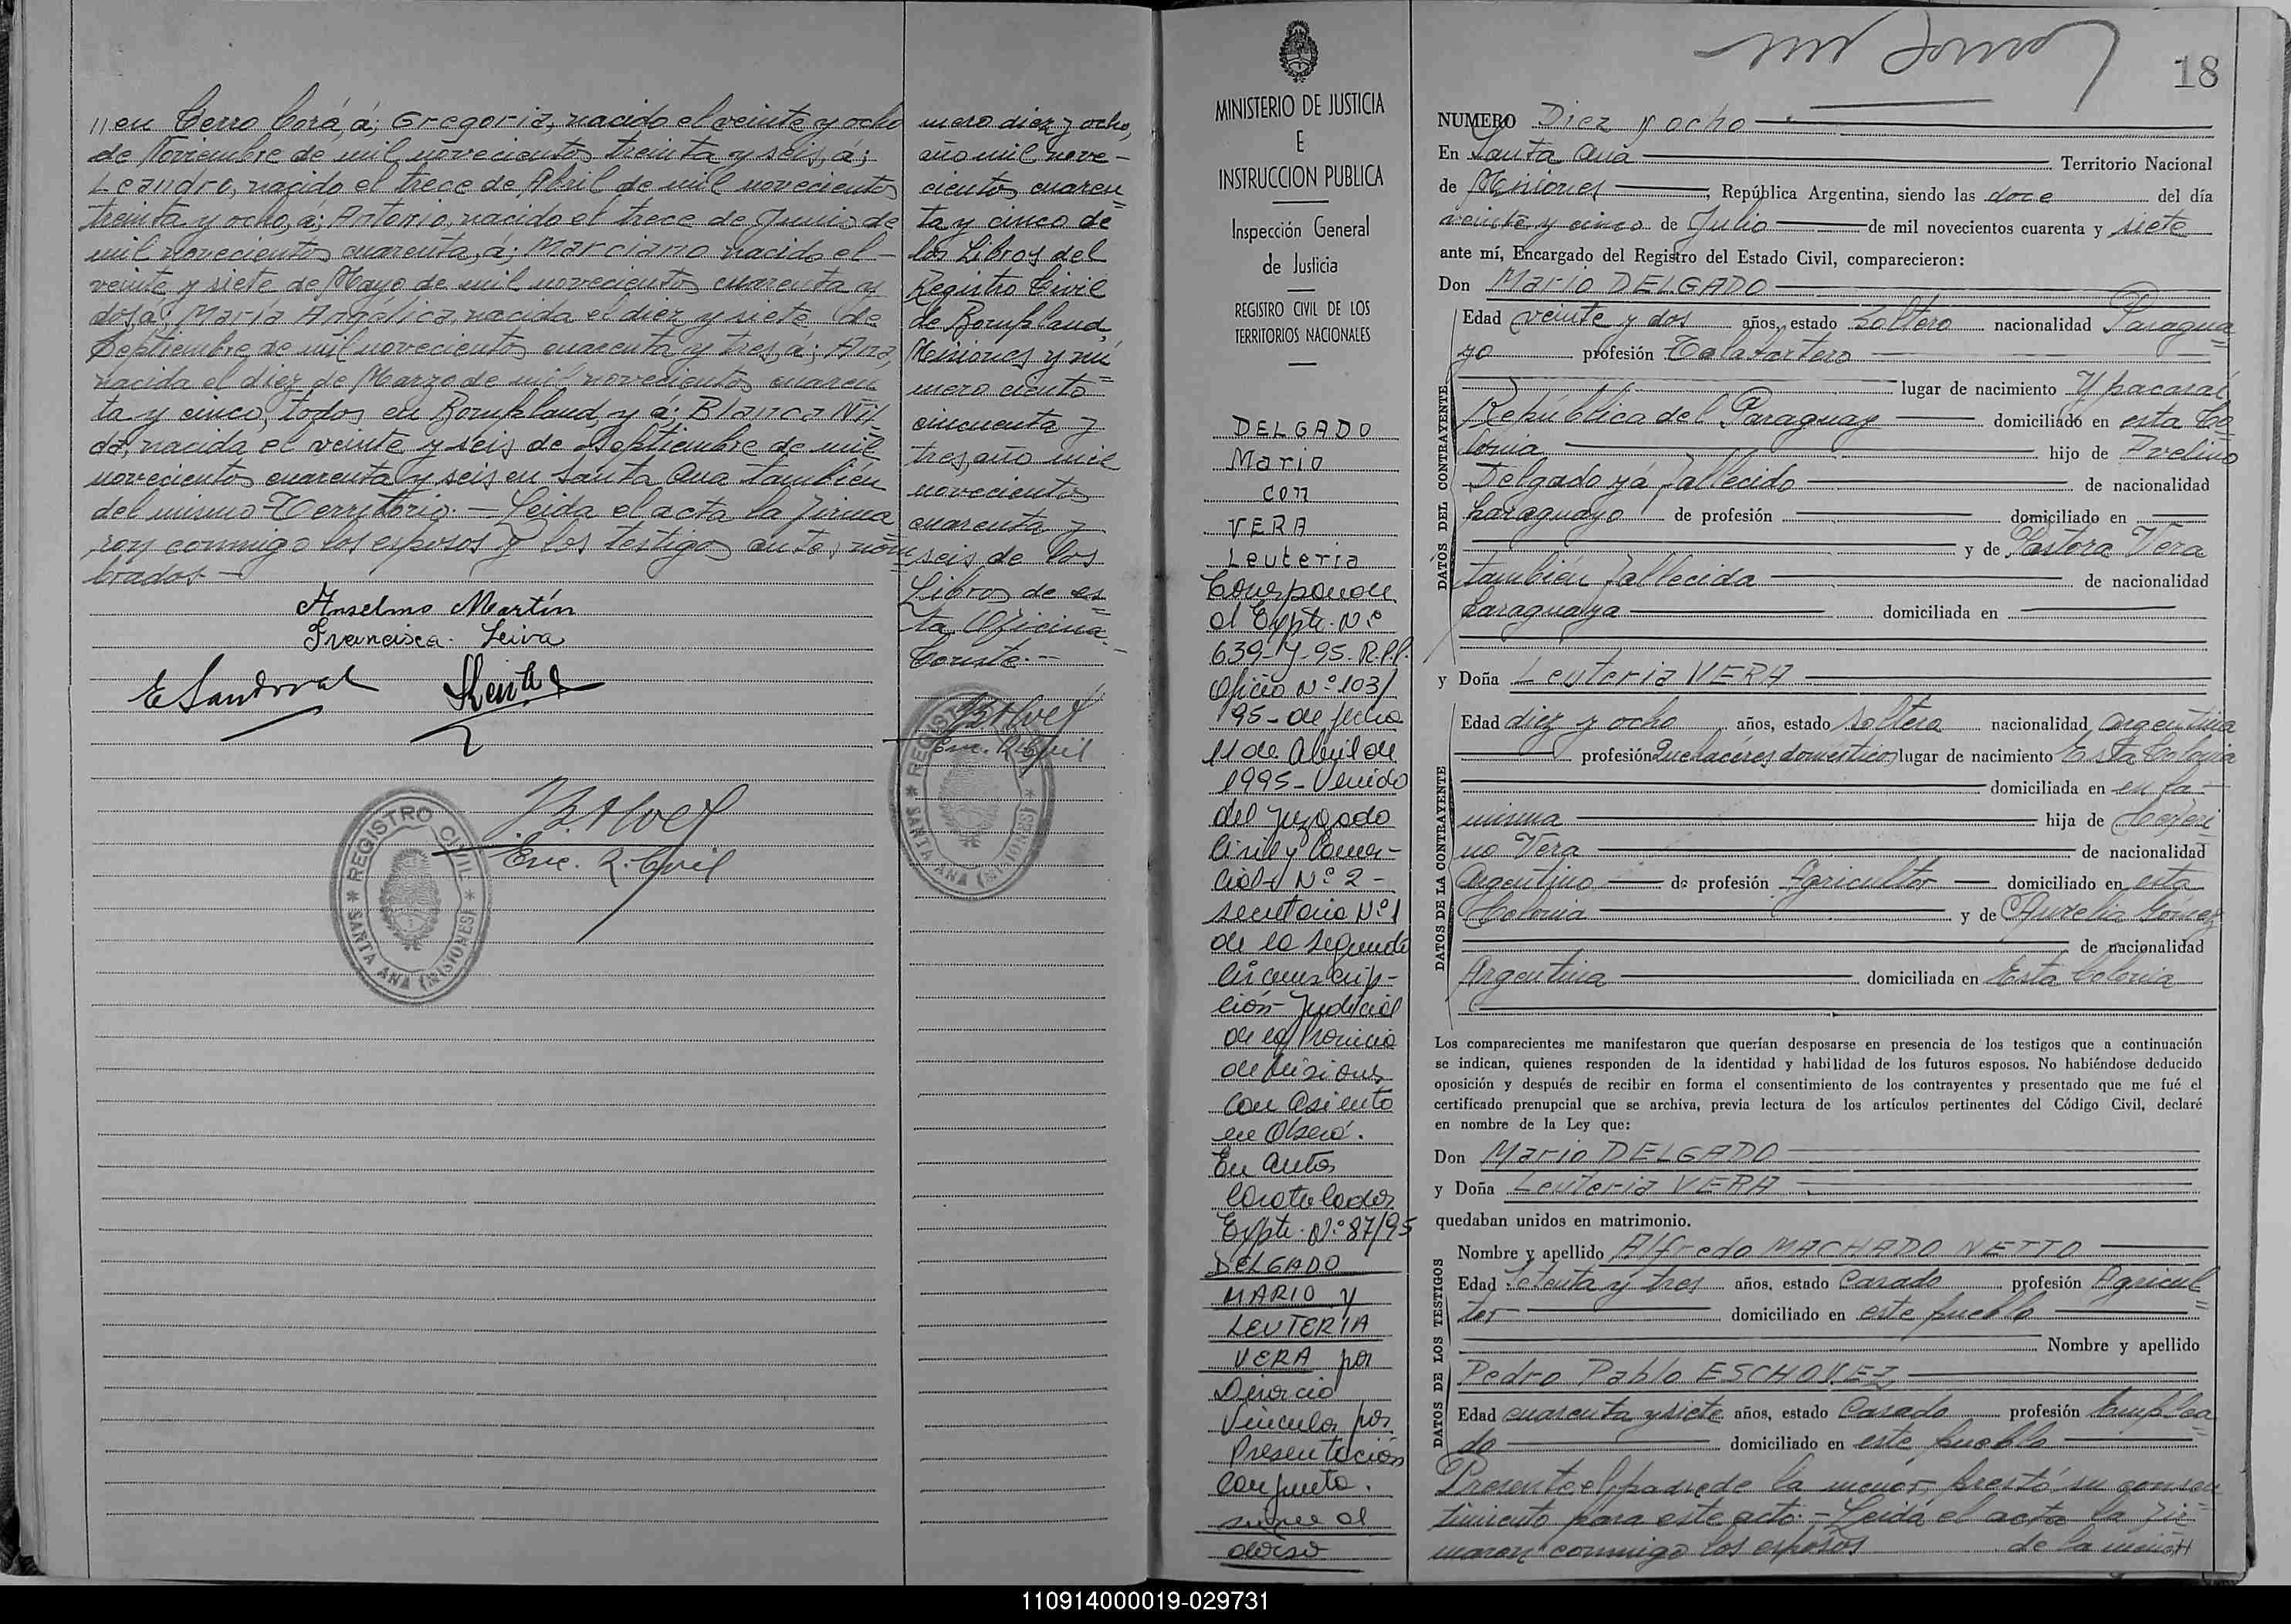 // en Cerro Corá, á; Gregoria, nacido el veinte y ocho
de Noviembre de mil novecientos treinta y seis, á;
Leandro, nacido el trece de Abril de mil novecientos
treinta y ocho, á; Antonio, nacido el trece de Junio de
mil novecientos cuarenta, á; Marciano nacido el -
veinte y siete de Mayo de mil novecientos cuarenta y
dos, á; Maria Angélica, nacida el diez y siete de
Septiembre de mil novecientos cuarenta y tres, á; Ana,
nacida el diez de Marzo de mil novecientos cuaren
ta y cinco, todos en Bompland, y á; Blanca Nil-
da, nacida el veinte y seis de Septiembre de mil
novecientos cuarenta y seis en Santa Ana también
del mismo Territorio. - Leida el acta la firma
ron conmigo los esposos y los testigos antes nom
brados. -
Anselmo Martín
Francisca Leiva
E Sandoval
Enc. R. Civil
REGISTRO CIVIL
SANTA ANA (MISIONES)
mero diez y ocho,
año mil nove-
cientos cuaren=
ta y cinco de
los Libros del
Registro Civil
de Bompland,
Misiones y nú
mero ciento
cincuenta y
tres, año mil
novecientos
cuarenta y
seis de los
Libros de es=
ta Oficina.
Conste. -
Enc. R. Civil
REGISTRO CIVIL
SANTA ANA (MISIONES)
MINISTERIO DE JUSTICIA
E
INSTRUCCION PUBLICA
Inspección General
de Justicia
REGISTRO CIVIL DE LOS
TERRITORIOS NACIONALES
DELGADO
Mario
con
VERA
Leuteria
Corresponde
al Expte. Nº
639-Y-95-R.P.P.
Oficio Nº 103/
95 - de fecha
11 de Abril de
1995 - Venido
del Juzgado
Civil y Comer-
cial Nº 2 -
secretaria Nº 1
de la segunda
Circunscrip-
ción Judicial
de la Provincia
de Misiones
con asiento
en Oberá.
En autos
Caratulados
Expte. Nº 87/95
DELGADO
MARIO y
LEUTERIA
VERA por
Divorcio
Vincular por
Presentación
Conjunta.
sigue al
dorso
18
NUMERO Diez y ocho
En Santa Ana Territorio Nacional
de Misiones, República Argentina, siendo las doce del día
veinte y cinco de Julio de mil novecientos cuarenta y siete
ante mí, Encargado del Registro del Estado Civil, comparecieron:
Don Mario DELGADO
DATOS DEL CONTRAYENTE
Edad veinte y dos años, estado Soltero nacionalidad Paragua=
yo profesión Talabartero
lugar de nacimiento Ypacaraí
República del Paraguay domiciliado en esta Co=
lonia hijo de Avelino
Delgado yá fallecido de nacionalidad
paraguayo de profesión domiciliado en
y de Pastora Vera
también fallecida de nacionalidad
paraguaya domiciliada en
y Doña Leuteria VERA
DATOS DE LA CONTRAYENTE
Edad diez y ocho años, estado soltera nacionalidad argentina
profesión Quehacéres domésticos, lugar de nacimiento Esta Colonia
domiciliada en en la
misma hija de Ceferi
no Vera de nacionalidad
Argentino de profesión Agricultor domiciliado en esta
Colonia y de Aurelia Gómez
de nacionalidad
Argentina domiciliada en Esta Colonia
Los comparecientes me manifestaron que querían desposarse en presencia de los testigos que a continuación
se indican, quienes responden de la identidad y habilidad de los futuros esposos. No habiéndose deducido
oposición y después de recibir en forma el consentimiento de los contrayentes y presentado que me fué el
certificado prenupcial que se archiva, previa lectura de los artículos pertinentes del Código Civil, declaré
en nombre de la Ley que:
Don Mario DELGADO
y Doña Leuteria VERA
quedaban unidos en matrimonio.
DATOS DE LOS TESTIGOS
Nombre y apellido Alfredo MACHADO NETTO
Edad setenta y tres años, estado Casado profesión Agricul=
tor domiciliado en este pueblo
Nombre y apellido
Pedro Pablo ESCHOVEZ
Edad cuarenta y siete años, estado Casado profesión Emplea=
do domiciliado en este pueblo
Presente el padre de la menor, prestó su consen=
timiento para este acto. - Leída el acta la fir=
maron conmigo los esposos de la menor//
110914000019-029731